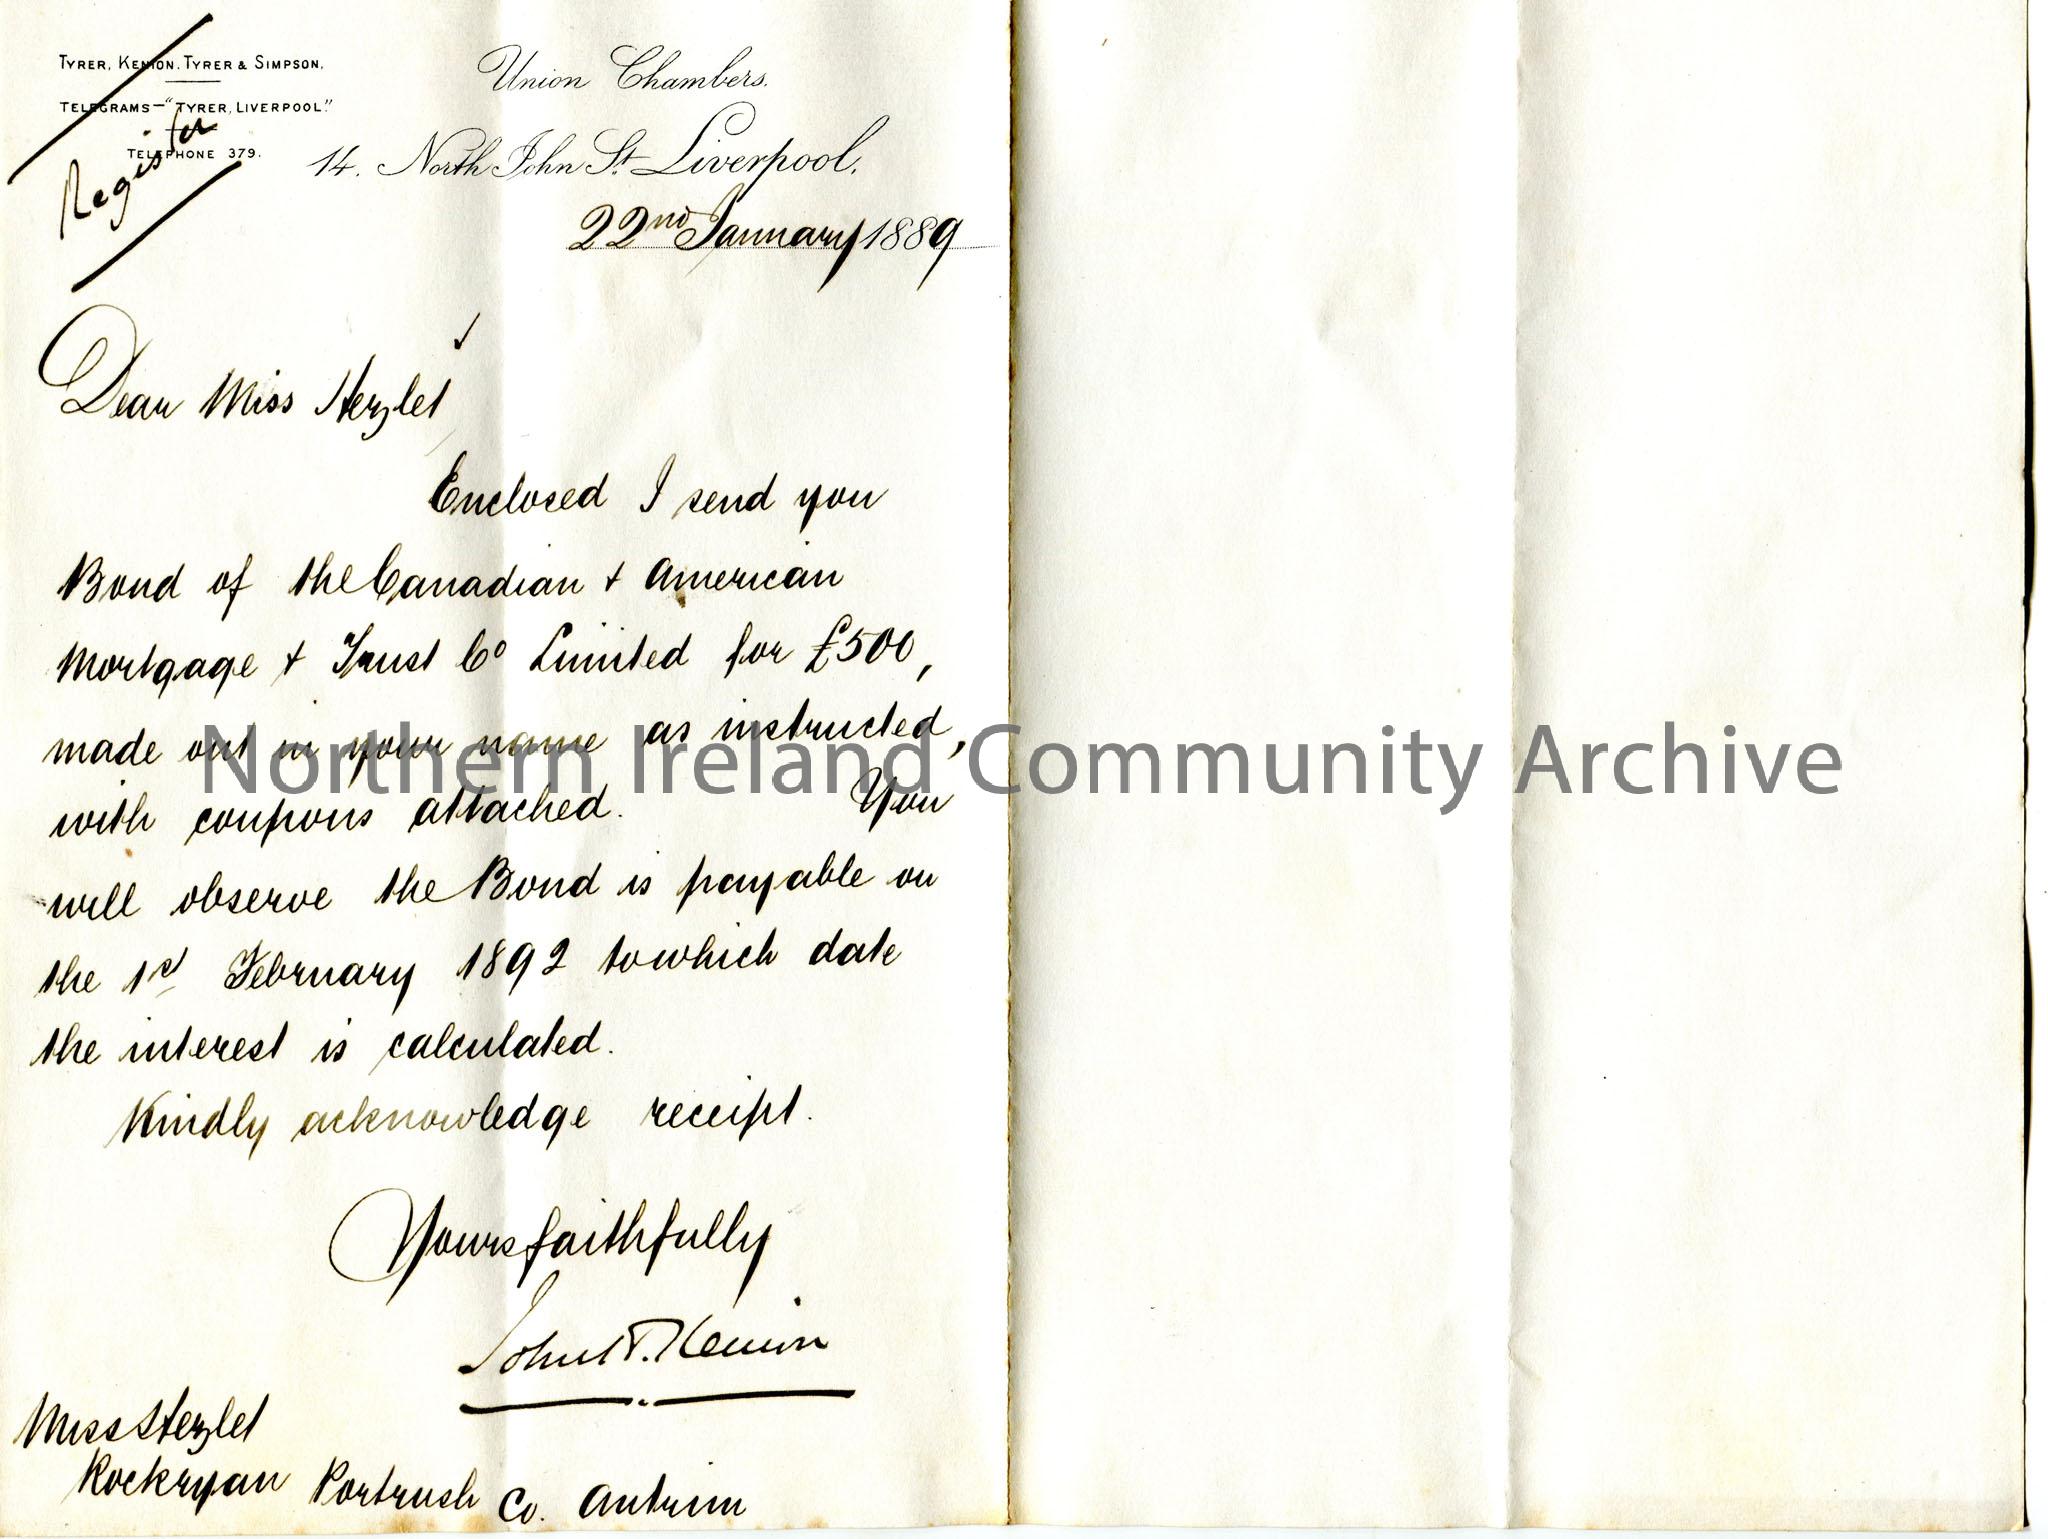 TYRER, KENION, TYRER & SIMPSON.
TELEGRAMS—"TYRER, LIVERPOOL."
TELEPHONE 379.
Register
Union Chambers.
14. North John St. Liverpool.
22nd January 1889
Dear Miss Hezlet
Enclosed I send you
Bond of the Canadian & American
Mortgage & Trust Co Limited for £500,
made out in your name as instructed,
with coupons attached. You
will observe the Bond is payable on
the 1st February 1892 to which date
the interest is calculated.
Kindly acknowledge receipt.
Yours faithfully
John T. Kenion
Miss Hezlet
Rockryan Portrush Co. Antrim
Northern Ireland Community Archive